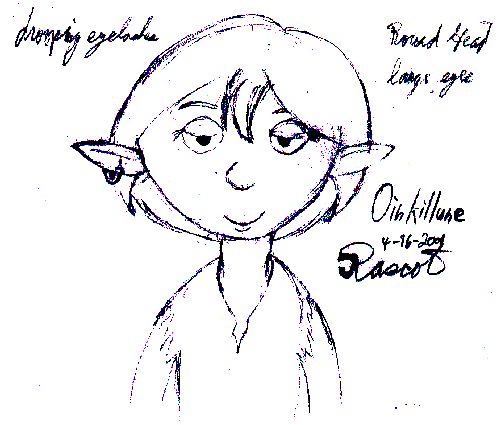 drooping eyelashes
Round Head
large eyes
Oinkillune
4-16-2001
Rascot